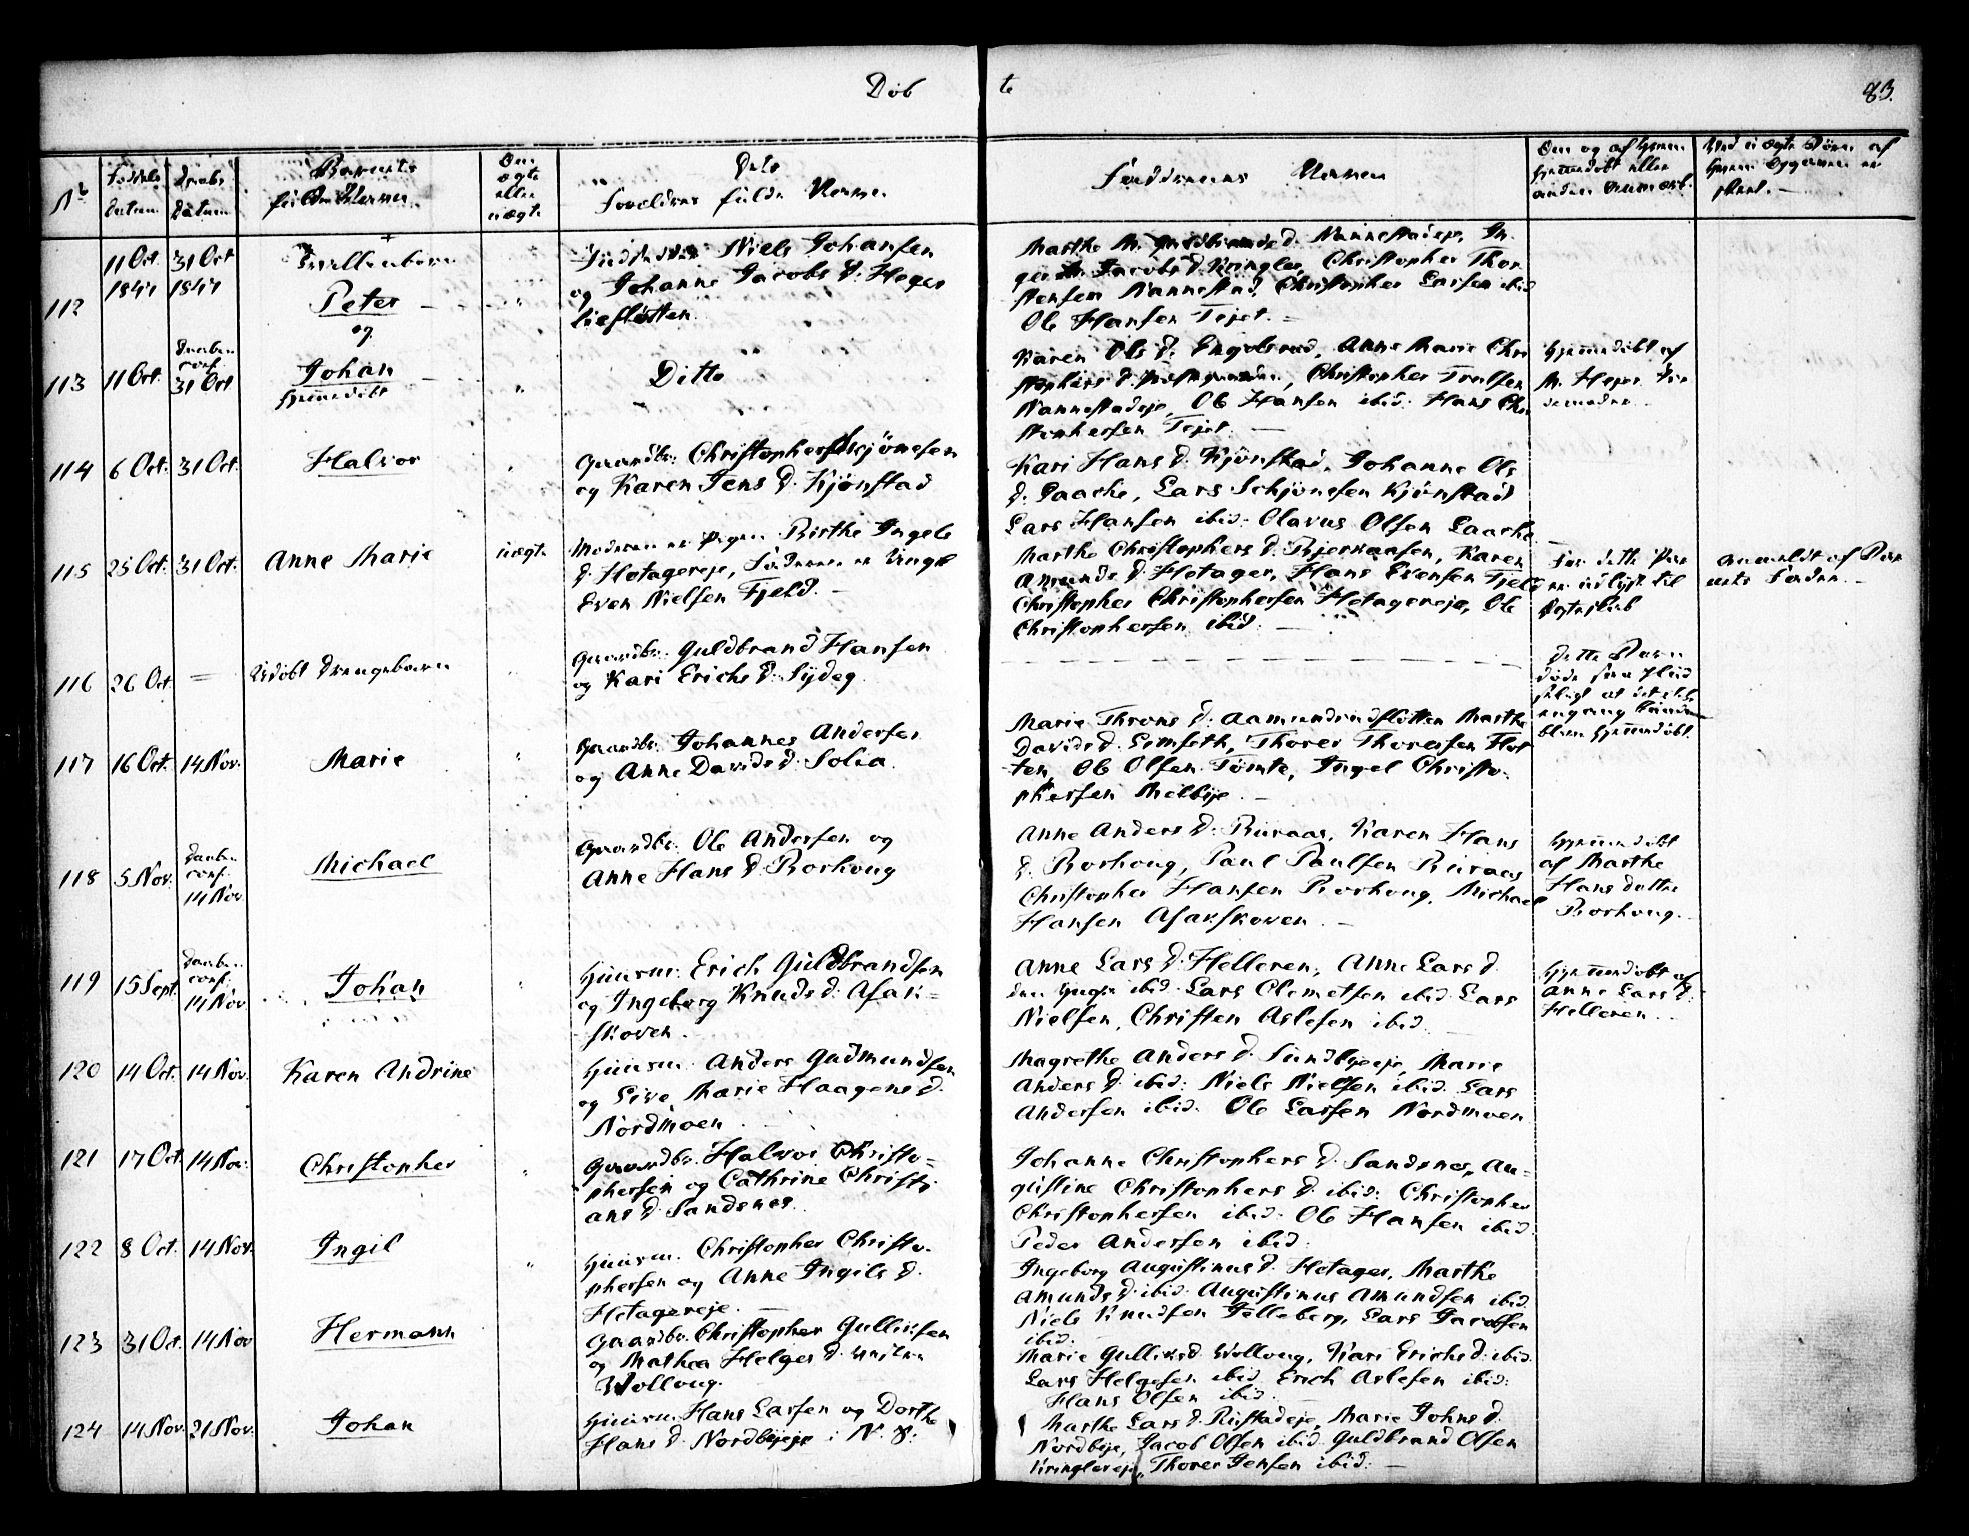 Døb
te
83.
No
Fødsels
Datum
Daabs
Datum
Barnets
fulde Navn.
Om
ægte
eller
uægte
Dets
Forældres fulde Navne
Faddernes Navne
Om og af hvem
hjemmedøbt eller
anden Anmærk.
112
11 Oct
1847
31 Oct
1847
Tvillinbørn
Peter
og
Niels Johansen
og Johanne Jacobs D. Heger
liefløtten.
Marthe M. Guldbrands D. Nannestadeje, In-
Jacobs D. Kringler, Christopher Thor
stensen Nannestad, Christopher Larsen ibid
Ole Hansen Tejet. —
113
11 Oct.
Daaben
conf.
31 Oct
Johan
hjemmedøbt
Ditto
Karen Ols D. Engelsrud, Anne Marie Chri
stophers D. Christopher Troelsen
Nannestadeje, Ole Hansen ibid. Hans Chri
stophersen Tejet. —
Hjemmedøbt af
M. Hejer Jor
demoder.
114
6 Oct.
31 Oct.
Halvor
Gaardbr. Christopher Skjønesen
og Karen Jens D. Kjønstad
Kari Hans D. Kjønstad, Johanne Ols
D. Laache, Lars Schjønesen Kjønstad
Lars Hansen ibid. Olavus Olsen Laache
115
25 Oct.
31 Oct.
Anne Marie
uægte
Moderen er Pigen Birthe Ingels
D. Hotagereje, Faderen er Ungk.
Even Nielsen Fjeld. —
Marthe Christophers D. Bjerkaasen, Karen
Amunds D. Hotager, Hans Evensen Fjeld
Christopher Christophersen Hotagereje, Ole
Christophersen ibid. —
For dette Par
er udlyst til
Ægteskab
Anmeldt af Bar
nets Fader. —
116
26 Oct.
=
Udøbt Drengebarn
Gaardbr. Guldbrand Hansen
og Kari Erichs D. Sydeg
Dette Barn
døde saa plud
seligt at det ikke
engang kunde
blive hjemmedøbt.
117
16 Oct.
14 Nov.
Marie
Gaardbr. Johannes Andersen
og Anne Davids D. Solia
Marie Throns D. Aamundrudfløtten Marthe
Davids D. Semseth, Thorer Thoresen Fløt
ten, Ole Olsen Tømte, Ingel Christo-
phersen Melbye. —
118
5 Nov.
Daaben
conf.
14 Nov
Michael
Gaardbr. Ole Andersen og
Anne Hans D. Borhoug
Anne Anders D. Buraas, Karen Hans
D. Borhoug, Paul Paulsen Buraas
Christopher Hansen Borhoug, Michael
Hansen Asakskoven. —
Hjemmedøbt
af Marthe
Hansdatter
Borhoug.
119
15 Sept.
Daaben
conf.
14 Nov
Johan
Huusm. Erich Guldbrandsen
og Ingeborg Knuds D. Asak=
skoven.
Anne Lars D. Helleren, Anne Lars D.
den yngre ibid. Lars Clemetsen ibid. Lars
Nielsen, Christen Aslesen ibid
Hjemmedøbt af
Anne Lars D.
Helleren
120
14 Oct.
14 Nov.
Karen Andrine
Huusm. Anders Gudmundsen
og Live Marie Haagens D.
Nordmoen.
Magrethe Anders D. Sundbyeje, Marie
Anders D. ibid: Niels Nielsen ibid. Lars
Andersen ibid. Ole Larsen Nordmoen
121
17 Oct
14 Nov.
Christopher
Gaardbr. Halvor Christo=
phersen og Cathrine Christi
ans D. Sandsnes.
Johanne Christophers D. Sandsnes, Au=
gustine Christophers D. ibid: Christopher
Christophersen ibid. Ole Hansen ibid
Peder Andersen ibid.
122
8 Oct.
14 Nov.
Ingil
Huusm. Christopher Christo-
phersen og Anne Ingils D.
Hotagereje. —
Ingeborg Augustinus D. Hotager, Marthe
Amunds D. ibid. Augustinus Amundsen ibid.
Niels Knudsen Felleberg, Lars Jacobsen
ibid.
123
31 Oct.
14 Nov
Hermann
Gaardbr. Christopher Gulliksen
og Mathea Helges D.
Wolloug.
Marie Gulliks D. Wolloug, Kari Erichs D. ibid.
Lars Helgesen ibid. Erich Aslesen ibid:
Hans Olsen ibid.
124
14 Nov.
21 Nov.
Johan
Huusm. Hans Larsen og Dorthe
Hans D. Nordbyeje i N. S.
Marthe Lars D. Rustadeje, Marie Johns D.
Nordbye, Jacob Olsen ibid. Guldbrand Olsen
Kringlereje, Thorer Jensen ibid. —